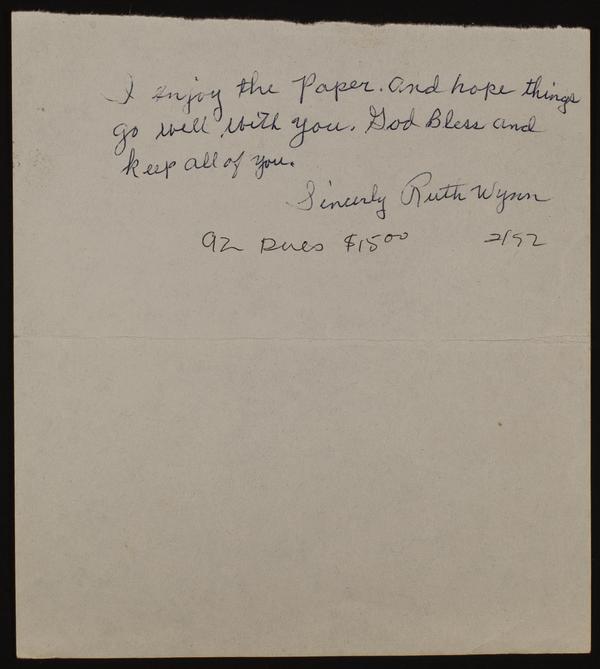 I enjoy the Paper. and hope things
go well with you. God Bless and
keep all of you.
Sincerly Ruth Wynn
92 Dues $15.00 2/92